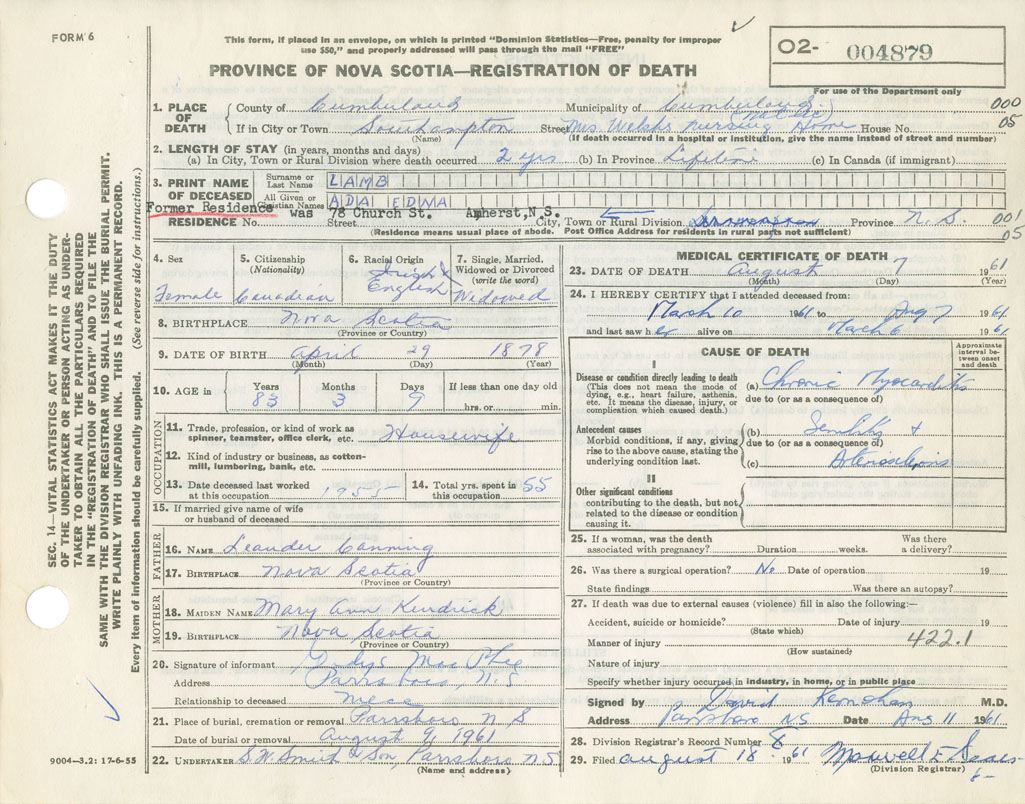 FORM 6
This form, if placed in an envelope, on which is printed "Dominion Statistics—Free, penalty for improper
use $50," and properly addressed will pass through the mail "FREE"
PROVINCE OF NOVA SCOTIA—REGISTRATION OF DEATH
O2- 004879
For use of the Department only
1. PLACE OF DEATH County of Cumberland Municipality of Cumberland 000
If in City or Town Southampton Street Mrs Welsh Nursing Home House No. 05
(Name) (If death occurred in a hospital or institution, give the name instead of street and number)
2. LENGTH OF STAY (in years, months and days)
(a) In City, Town or Rural Division where death occurred 2 yrs (b) In Province Lifetime (c) In Canada (if immigrant)
3. PRINT NAME OF DECEASED Surname or Last Name LAMB
All Given or Christian Names ADA EDNA
Former Residence was 78 Church St. Amherst, N.S. 001
RESIDENCE No. Street City, Town or Rural Division Province N.S. 05
(Residence means usual place of abode. Post Office Address for residents in rural parts not sufficient)
4. Sex Female
5. Citizenship (Nationality) Canadian
6. Racial Origin Irish English
7. Single, Married, Widowed or Divorced (write the word) Widowed
8. BIRTHPLACE Nova Scotia
(Province or Country)
9. DATE OF BIRTH April 29 1878
(Month) (Day) (Year)
10. AGE in Years 83 Months 3 Days 9 If less than one day old
hrs. or min.
OCCUPATION
11. Trade, profession, or kind of work as spinner, teamster, office clerk, etc. Housewife
12. Kind of industry or business, as cotton-mill, lumbering, bank, etc.
13. Date deceased last worked at this occupation 1955
14. Total yrs. spent in this occupation 55
15. If married give name of wife or husband of deceased
FATHER
16. NAME Leander Canning
17. BIRTHPLACE Nova Scotia
(Province or Country)
MOTHER
18. MAIDEN NAME Mary Ann Kendrick
19. BIRTHPLACE Nova Scotia
(Province or Country)
20. Signature of informant Gladys MacPhee
Address Parrsboro, N.S
Relationship to deceased Niece
21. Place of burial, cremation or removal Parrsboro N S
Date of burial or removal August 9, 1961
22. UNDERTAKER S.W. Smith & Son, Parrsboro N.S
(Name and address)
MEDICAL CERTIFICATE OF DEATH
23. DATE OF DEATH August 7 1961
(Month) (Day) (Year)
24. I HEREBY CERTIFY that I attended deceased from:
March 10 1961 to Aug 7 1961
and last saw her alive on March 6 1961
CAUSE OF DEATH
Approximate interval between onset and death
I
Disease or condition directly leading to death
(This does not mean the mode of dying, e.g., heart failure, asthenia, etc. It means the disease, injury, or complication which caused death.)
(a) Chronic Myocarditis
due to (or as a consequence of)
Antecedent causes
Morbid conditions, if any, giving rise to the above cause, stating the underlying condition last.
(b) Senility +
due to (or as a consequence of)
(c)
II
Other significant conditions
contributing to the death, but not related to the disease or condition causing it.
25. If a woman, was the death associated with pregnancy? Duration weeks. Was there a delivery?
26. Was there a surgical operation? No Date of operation 19
State findings Was there an autopsy?
27. If death was due to external causes (violence) fill in also the following:—
Accident, suicide or homicide? Date of injury 19
(State which)
Manner of injury 422.1
(How sustained)
Nature of injury
Specify whether injury occurred in industry, in home, or in public place
Signed by David M.D.
Address Parrsboro NS Date Aug 11 1961
28. Division Registrar's Record Number 8
29. Filed August 18 1961 Maxwell F.
(Division Registrar)
9004—3.2: 17-6-55
SEC. 14—VITAL STATISTICS ACT MAKES IT THE DUTY
OF THE UNDERTAKER OR PERSON ACTING AS UNDER-
TAKER TO OBTAIN ALL THE PARTICULARS REQUIRED
IN THE "REGISTRATION OF DEATH" AND TO FILE THE
SAME WITH THE DIVISION REGISTRAR WHO SHALL ISSUE THE BURIAL PERMIT.
WRITE PLAINLY WITH UNFADING INK. THIS IS A PERMANENT RECORD.
Every item of information should be carefully supplied. (See reverse side for instructions.)